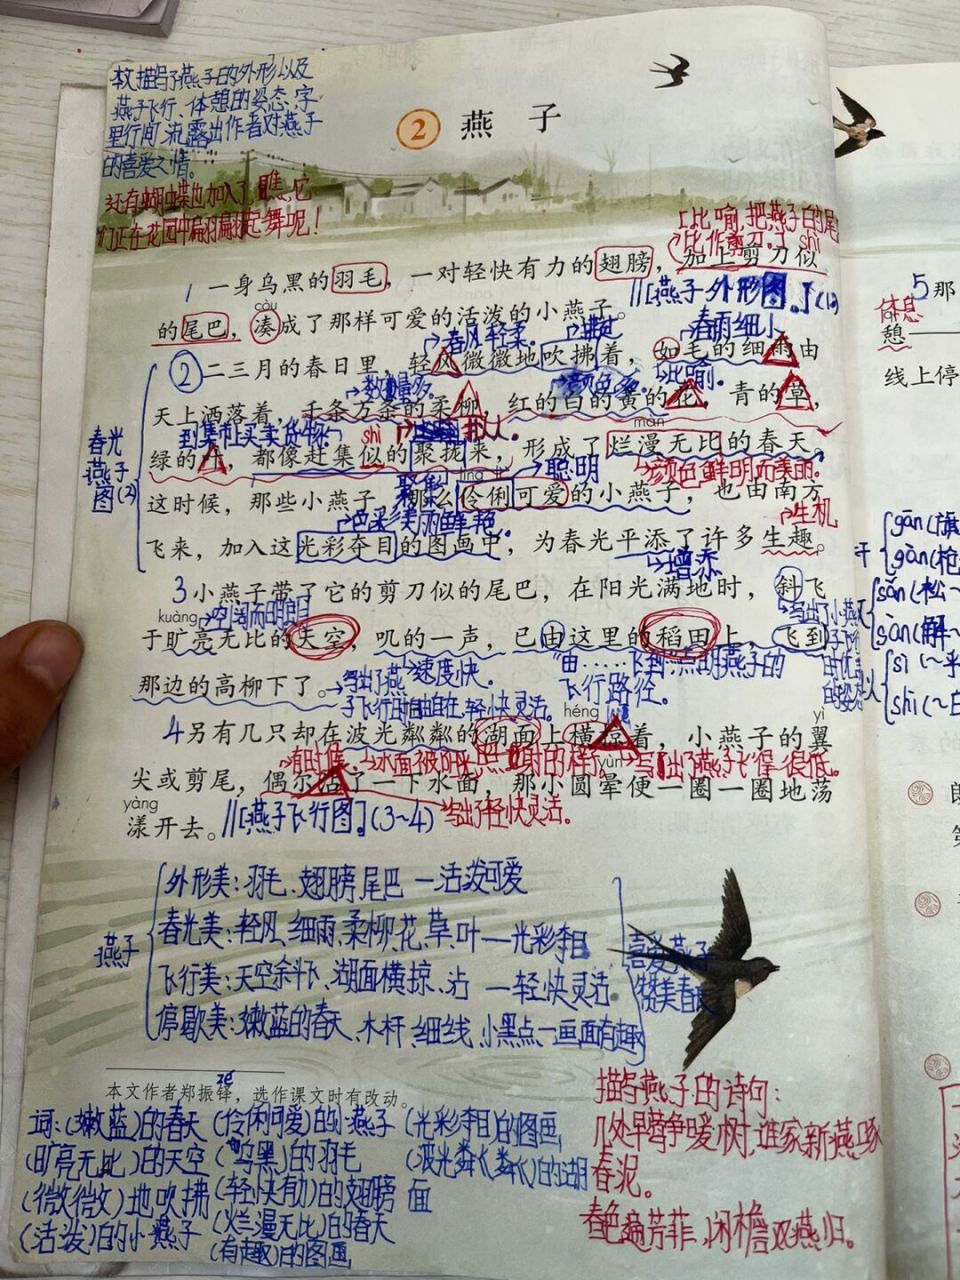 本文描写了燕子的外形以及
燕子飞行、休憩的姿态,字
里行间流露出作者对燕子
的喜爱之情。
还有蝴蝶也加入了,瞧,它
们正在花园中翩翩起舞呢!
② 燕子
[比喻,把燕子的尾
比作剪刀。] shì
1 一身乌黑的羽毛,一对轻快有力的翅膀,加上剪刀似
//[燕子外形图。](1)
còu
的尾巴,凑成了那样可爱的活泼的小燕子。
春风轻柔。
春雨细小
②二三月的春日里,轻风微微地吹拂着,如毛的细雨由
数量多。
比喻。
天上洒落着,千条万条的柔柳,红的白的黄的花,青的草,
到集市上买卖货物。
shì
拟人。
màn
绿的叶,都像赶集似的聚拢来,形成了烂漫无比的春天。
聪明
颜色鲜明而美丽。
春光
燕子
图(2)
这时候,那些小燕子,那么伶俐可爱的小燕子,也由南方
色彩美丽鲜艳。
生机
飞来,加入这光彩夺目的图画中,为春光平添了许多生趣。
增添
3 小燕子带了它的剪刀似的尾巴,在阳光满地时,斜飞
kuàng
空阔而明亮
于旷亮无比的天空,叽的一声,已由这里的稻田上,飞到
速度快。
"由……飞到…点明燕子的
飞行路径。
那边的高柳下了。
写出了燕
子飞行时自由自在,轻快灵活。
héng
yì
4 另有几只却在波光粼粼的湖面上横掠着,小燕子的翼
有时候。
水面被阳光照射的样
写出了燕子飞得很低。
yùn
尖或剪尾,偶尔沾了一下水面,那小圆晕便一圈一圈地荡
yàng
漾开去。
//[燕子飞行图](3~4)
写出了轻快灵活。
燕子
外形美:羽毛、翅膀尾巴 —活泼可爱
春光美:轻风、细雨、柔柳、花、草、叶—光彩夺目
飞行美:天空斜飞、湖面横掠、沾 —轻快灵活
停歇美:嫩蓝的春天、木杆、细线、小黑点—画面有趣
喜爱燕子
赞美春天
zé
本文作者郑振铎,选作课文时有改动。
词:(嫩蓝)的春天 (伶俐可爱)的小燕子 (光彩夺目)的图画
(旷亮无比)的天空 (乌黑)的羽毛 (波光粼粼)的湖
面
(微微)地吹拂 (轻快有力)的翅膀
(活泼)的小燕子 (烂漫无比)的春天
(有趣)的图画
描写燕子的诗句:
几处早莺争暖树,谁家新燕啄
春泥。
春色遍芳菲,闲檐双燕归。
5 那
休息
憩
线上停
gān(旗
杆
gǎn(枪
sǎn(松~
散
sàn(解~
sì(~乎
似
shì(~的